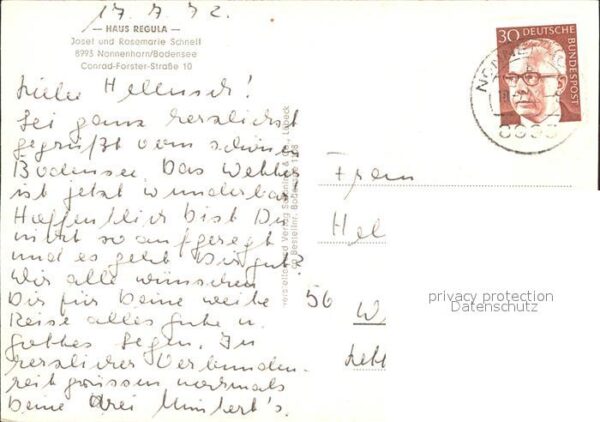 17.7.72.
— HAUS REGULA —
Josef und Rosemarie Schnell
8993 Nonnenhorn/Bodensee
Conrad-Forster-Straße 10
30 DEUTSCHE BUNDESPOST
8993
Sei ganz herzlichst
gegrüßt vom schönen
Bodensee. Das Wetter
ist jetzt wunderbar.
Hoffentlich bist Du
nicht so aufgeregt
und es geht Dir gut?
Wir alle wünschen
Dir für Deine weite
Reise alles Gute u.
Gottes Segen. In
herzlicher Verbunden-
heit grüssen nochmals
Deine drei
Frau
Hel
56
W
privacy protection
Datenschutz